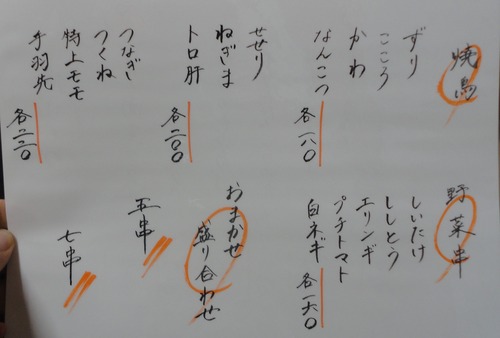 焼鳥
ずり
こころ
かわ
なんこつ
各一八〇
せせり
ねぎま
トロ肝
各二〇〇
つなぎ
つくね
特上モモ
手羽先
各二二〇
野菜串
しいたけ
ししとう
エリンギ
プチトマト
白ネギ
各一六〇
おまかせ
盛り合わせ
五串
七串